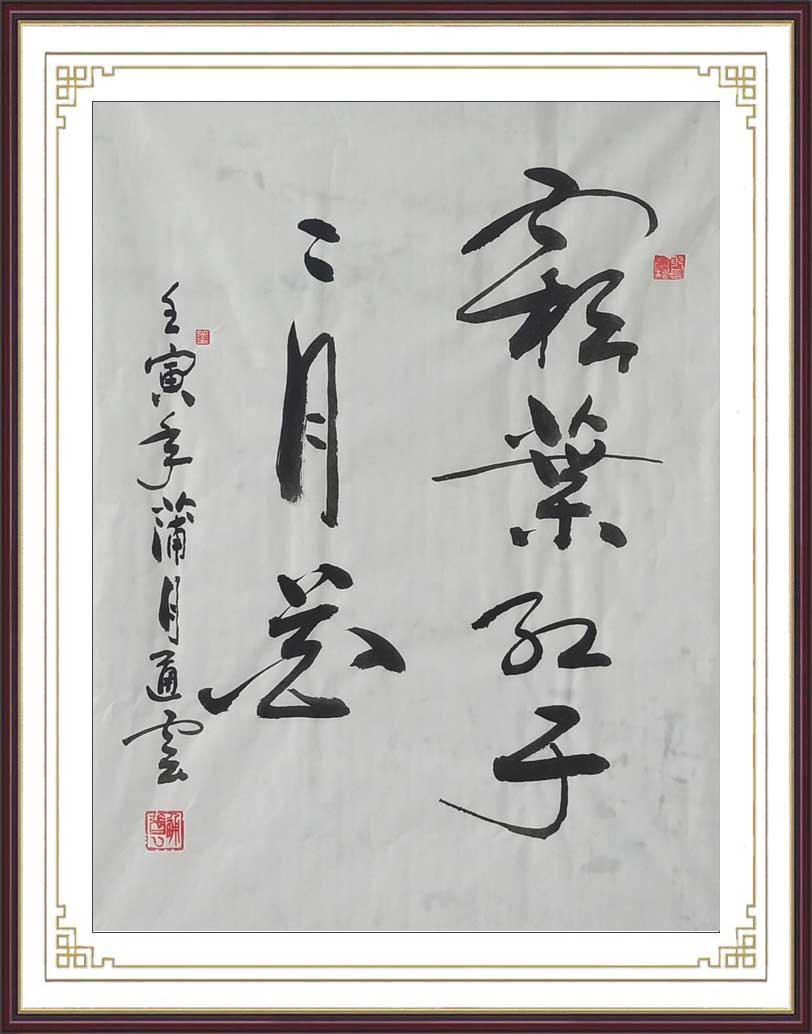 霜葉红于
二月花
壬寅年蒲月通雲